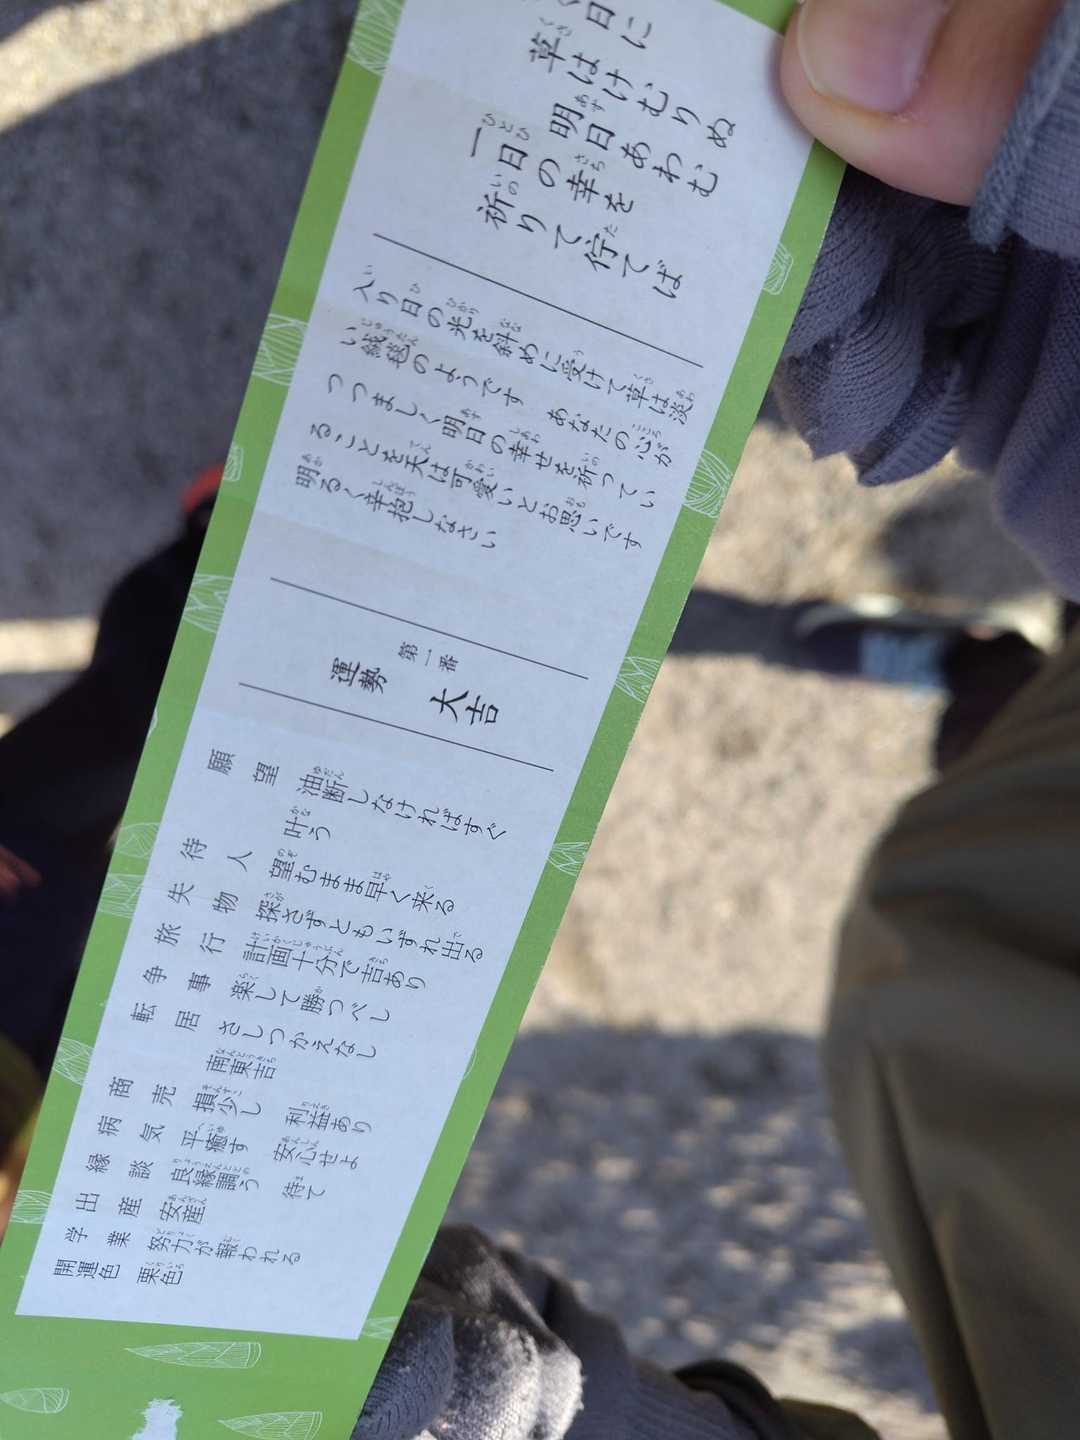 日に
草はけむりぬ
明日あわむ
一日の幸を
祈りて佇てば
入り日の光を斜めに受けて草は淡
い絨毯のようです　あなたの心が
つつましく明日の幸せを祈ってい
ることを天は可愛いとお思いです
明るく辛抱しなさい
第一番
運勢　大吉
願望　油断しなければすぐ
叶う
待人　望むまま早く来る
失物　探さずともいずれ出る
旅行　計画十分で吉あり
争事　楽して勝つべし
転居　さしつかえなし
南東吉
商売　損少し　利益あり
病気　平癒す　安心せよ
縁談　良縁調う　待て
出産　安産
学業　努力が報われる
開運色　栗色